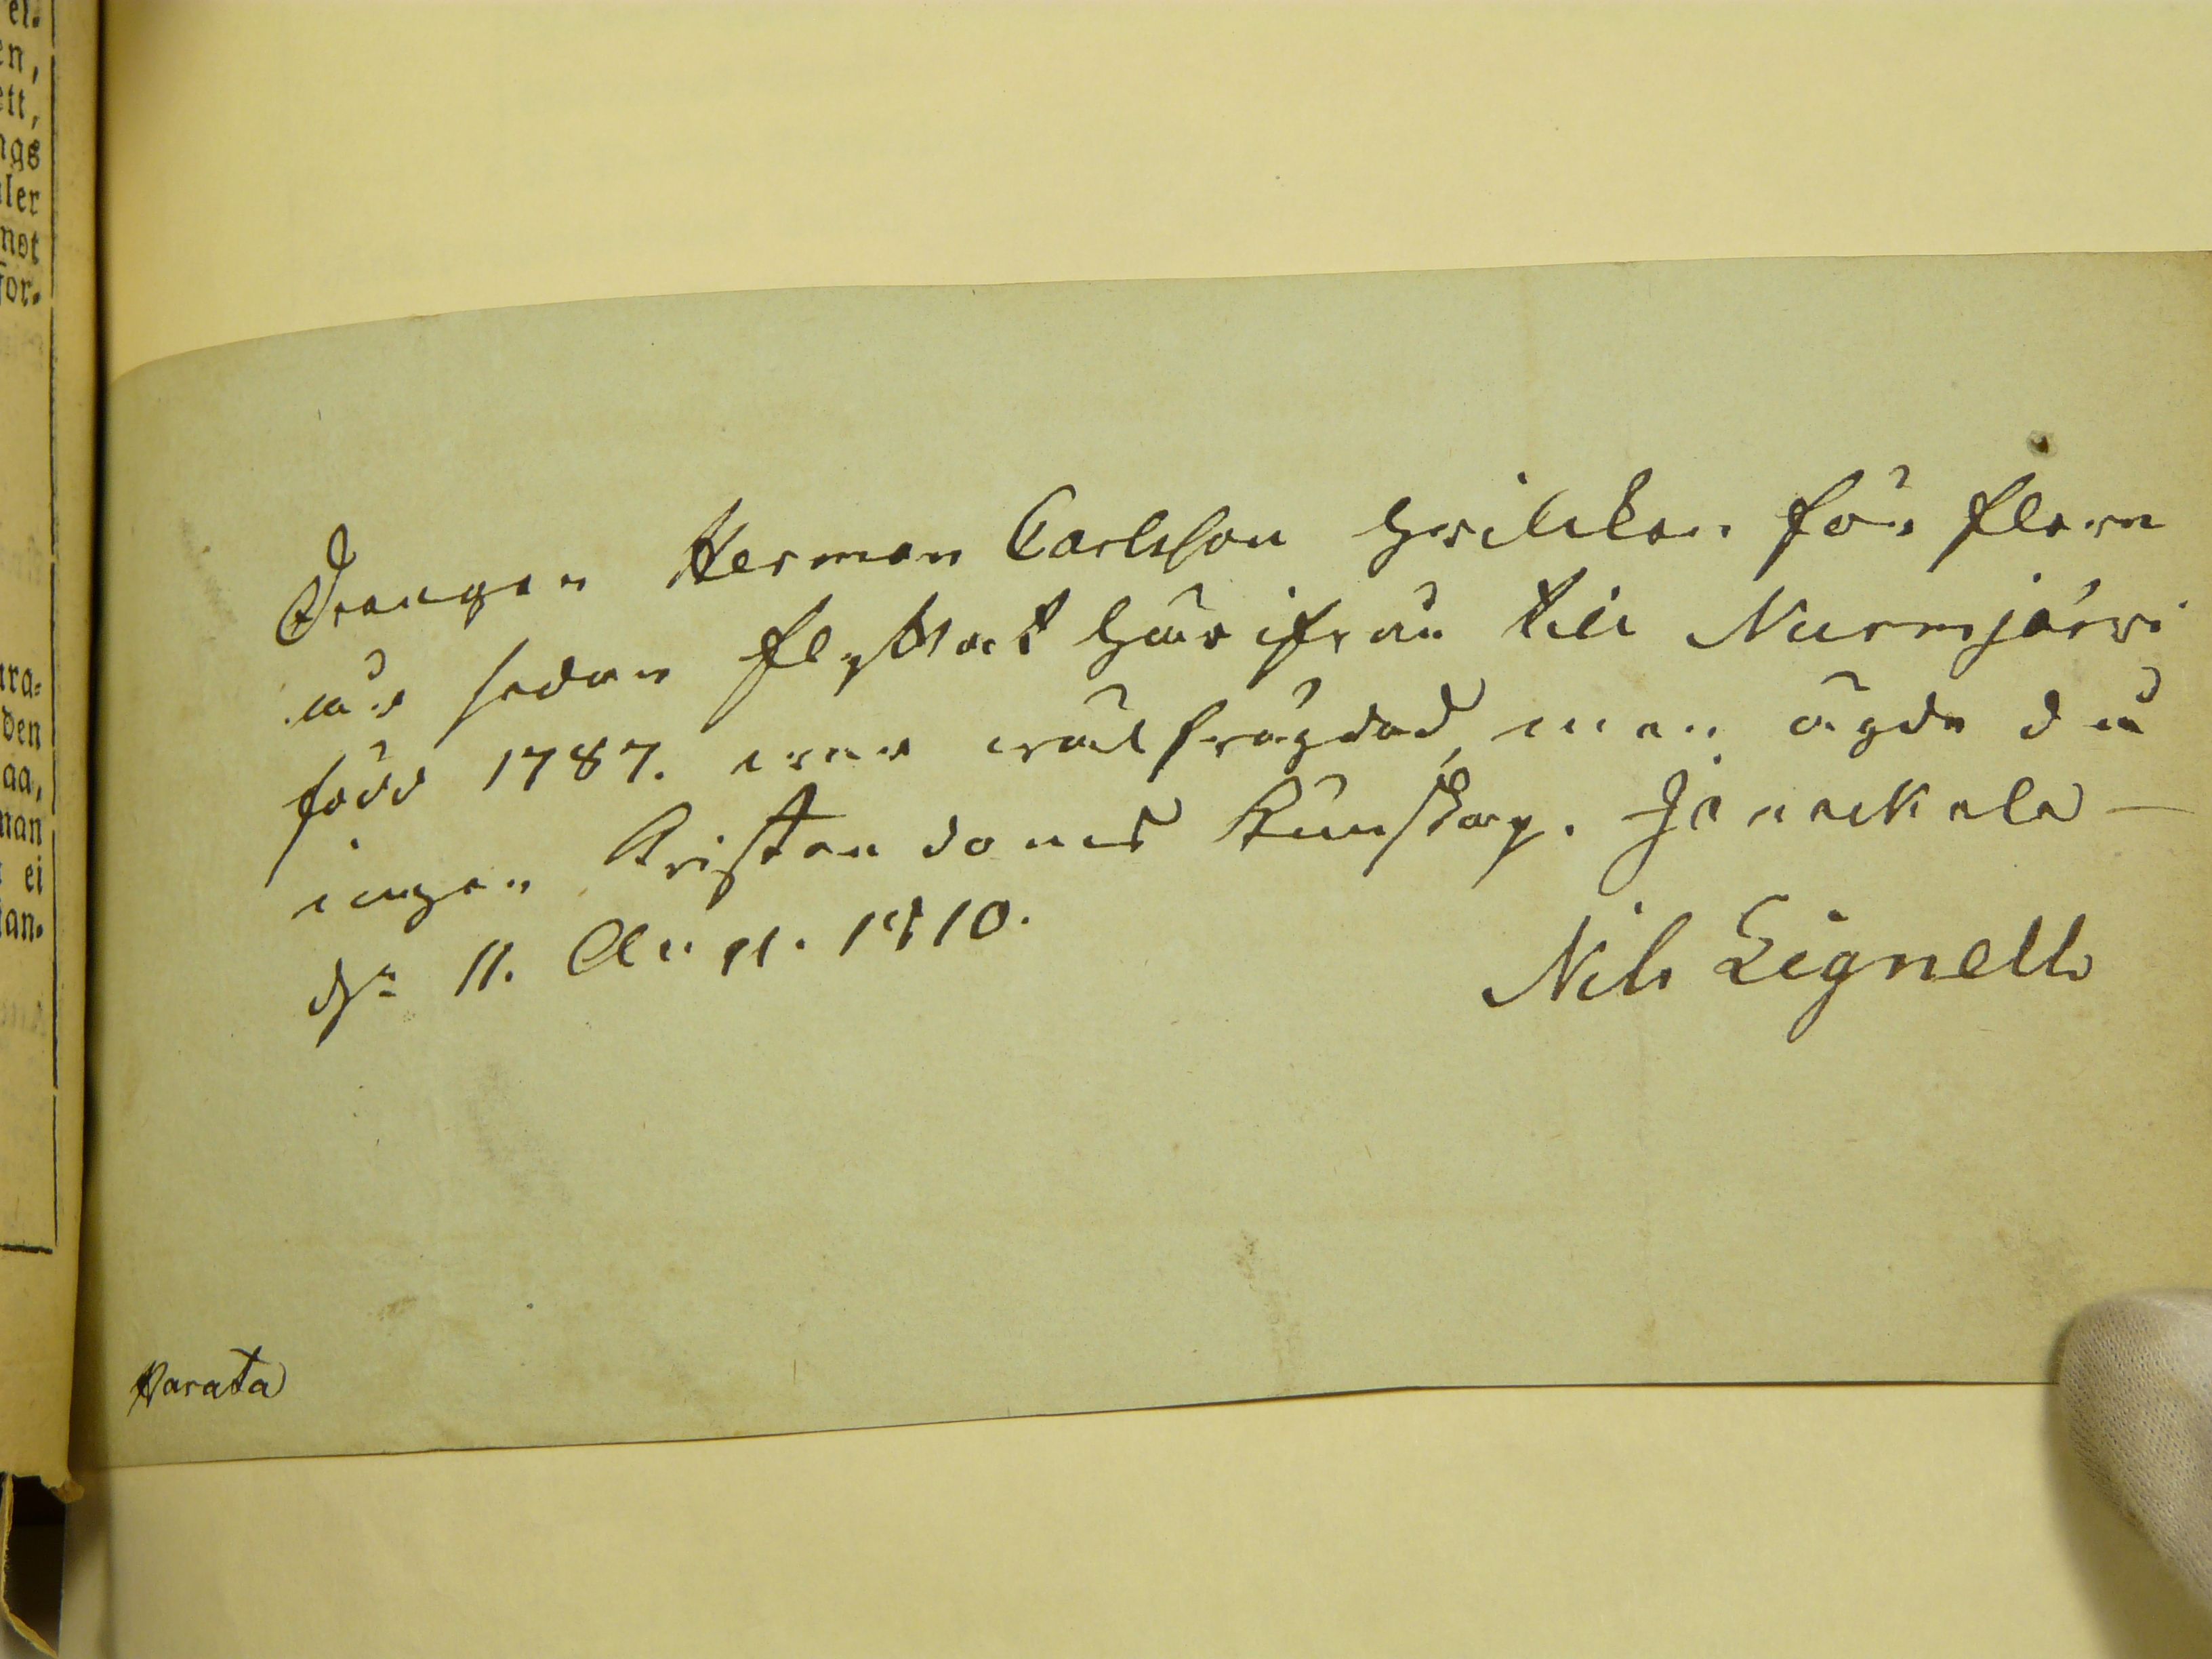 el.
en,
ett,
ngs
ler
not
för.
ara-
den
aa,
nan
ei
tan.
Drengen Herman Carlsson hvilken för flere
år sedan flyttat härifrån till Nurmjärvi
född 1787. war wälfrägdad, men ägde då
ingen Kristendoms kunskap. Janackala
dn 11. Aug. 1810.
Nils Lignell
Parata